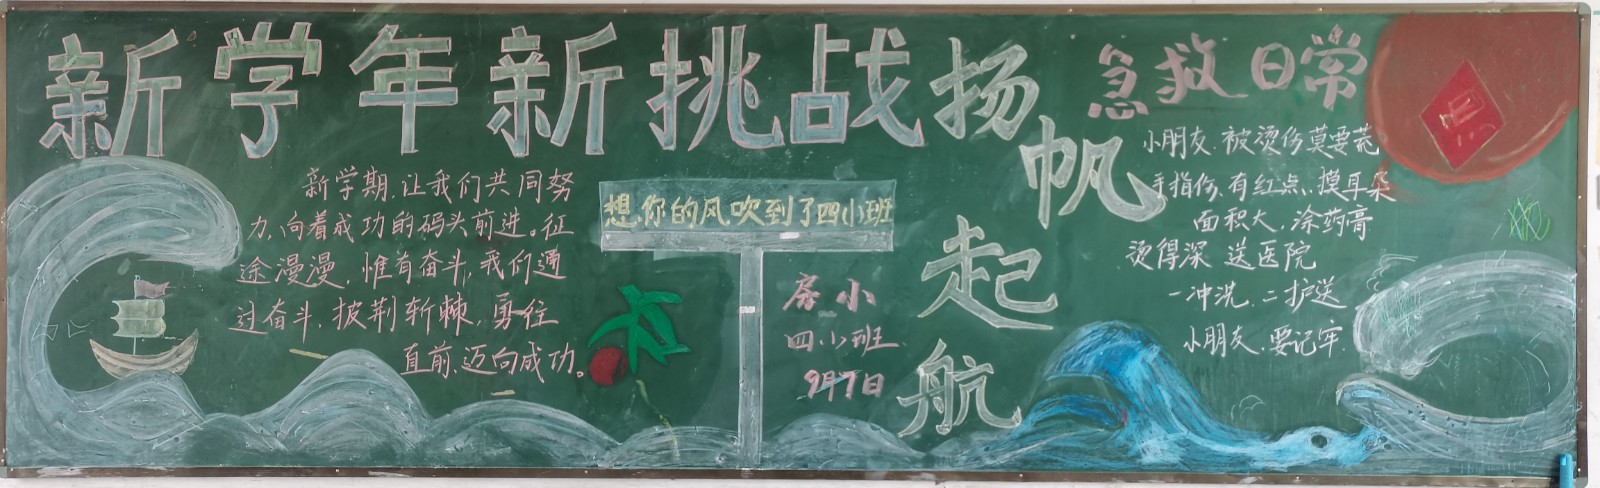 新学年新挑战扬帆起航
新学期,让我们共同努
力,向着成功的码头前进。征
途漫漫,惟有奋斗,我们通
过奋斗,披荆斩棘,勇往
直前,迈向成功。
想你的风吹到了四小班
房小
四小班
9月7日
急救日常
小朋友.被烫伤莫要荒
手指伤,有红点、摸耳朵
面积大,涂药膏
烫得深 送医院
一冲洗,二护送
小朋友,要记牢.